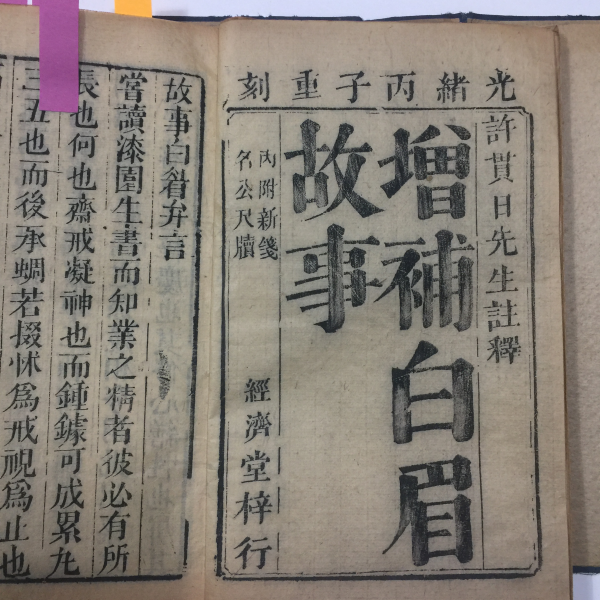 光緒丙子重刻
許貫日先生註釋
增補白眉
故事
內附新箋
名公尺牘
經濟堂梓行
故事白眉弁言
嘗讀漆園生書而知業之精者彼必有所
長也何也齋戒凝神也而鍾鐻可成累丸
三五也而後承蜩若掇怵為戒視為止也